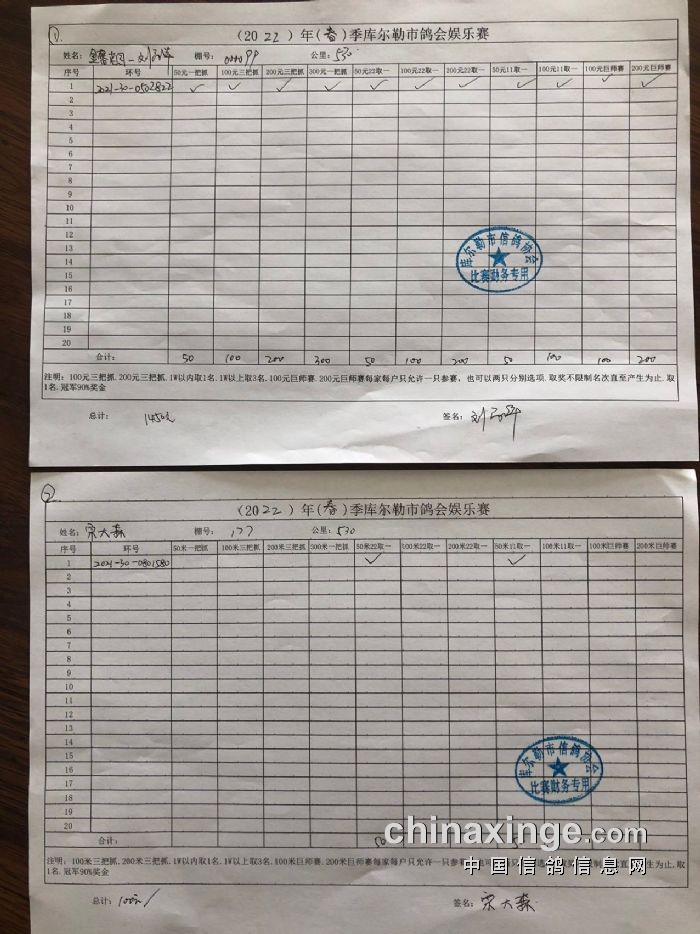 ①
(2022)年(春)季库尔勒市鸽会娱乐赛
姓名: 棚号: 公里: 530
序号 环号 50元一把抓 100元三把抓 200元三把抓 300元一把抓 50元22取一 100元22取一 200元22取一 50元11取一 100元11取一 100元巨师赛 200元巨师赛
1 2021-30-0502822 ✓ ✓ ✓ ✓ ✓ ✓ ✓ ✓ ✓ ✓ ✓
2
3
4
5
6
7
8
9
10
11
12
13
14
15
16
17
18
19
20
库尔勒市信鸽协会
比赛财务专用
合计: 50 100 200 300 50 100 200 50 100 100 200
注明: 100元三把抓.200元三把抓.1W以内取1名.1W以上取3名.100元巨师赛.200元巨师赛每家每户只允许一只参赛, 也可以两只分别选项.取奖不限制名次直至产生为止.取
1名.冠军90%奖金
总计: 1450元 签名: 刘
②
(2022)年(春)季库尔勒市鸽会娱乐赛
姓名: 宋大森 棚号: 177 公里: 530
序号 环号 50米一把抓 100米三把抓 200米三把抓 300米一把抓 50米22取一 100米22取一 200米22取一 50米11取一 100米11取一 100米巨师赛 200米巨师赛
1 2021-30-0801580 ✓ ✓
2
3
4
5
6
7
8
9
10
11
12
13
14
15
16
17
18
19
20
库尔勒市信鸽协会
比赛财务专用
合计: 50
chinaxinge.com
中国信鸽信息网
注明: 100米三把抓.200米三把抓.1W以内取1名.1W以上取3名.100米巨师赛.200米巨师赛每家每户只允许一只参赛 也可 两只 选 取奖 限制 次直至产生为止.取
1名.冠军90%奖金
总计: 100元 签名: 宋大森